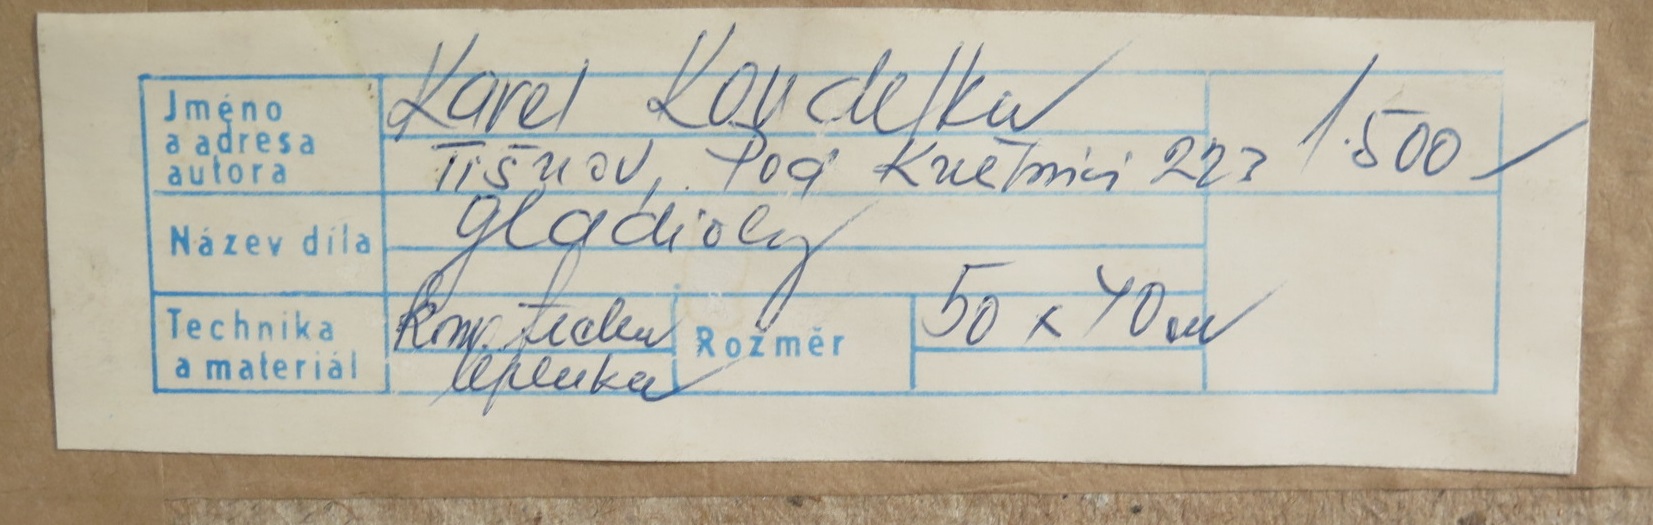 Jméno
a adresa
autora
Karel Koudelka
Tišnov, Pod Květnicí 223
1.500
Název díla
gladioly
Technika
a materiál
Komb. techn
lepenka
Rozměr
50 x 70 cm